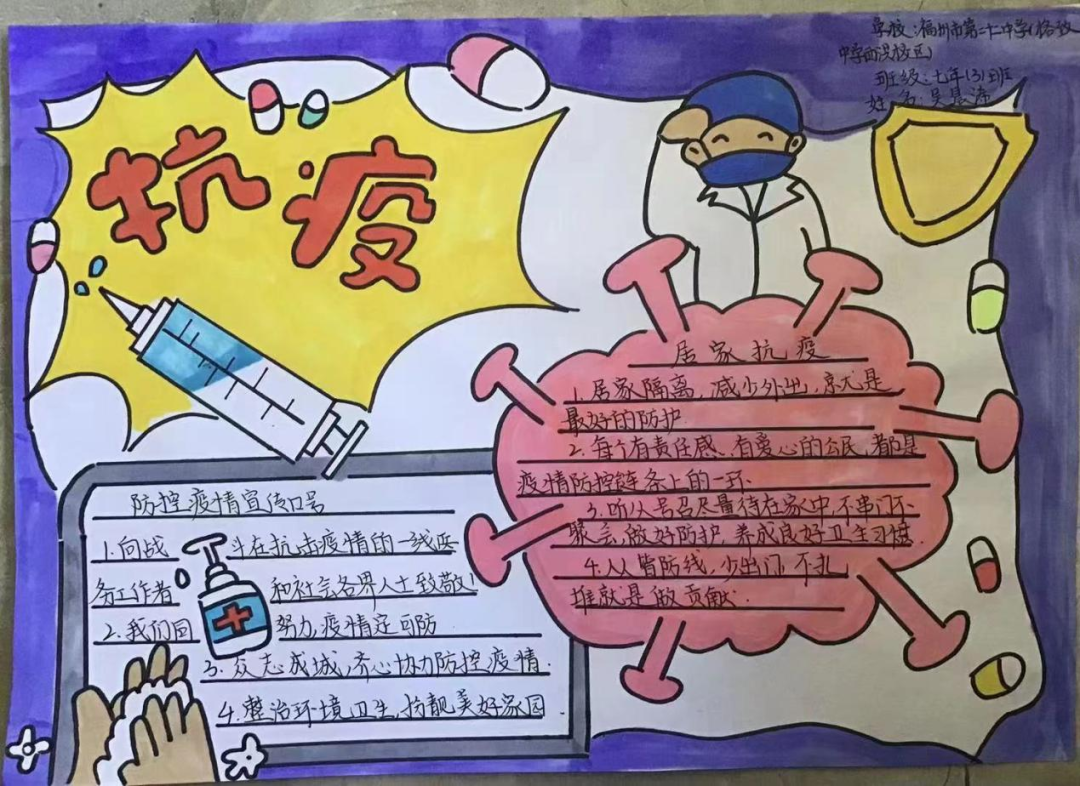 学校:福州市第二十中学(格致
中学西洪校区)
班级:七年(3)班
姓名:吴
抗疫
居家抗疫
1.居家隔离,减少外出,就是
最好的防护.
2.每个有责任感、有爱心的公民,都是
疫情防控链条上的一环.
3.听从号召尽量待在家中,不串门不
聚会,做好防护,养成良好卫生习惯.
4.人人皆防线,少出门,不扎
堆就是做贡献.
防控疫情宣传口号
1.向战斗在抗击疫情的一线医
务工作者和社会各界人士致敬!
2.我们同努力,疫情定可防.
3.众志成城,齐心协力防控疫情.
4.整治环境卫生,扮靓美好家园.